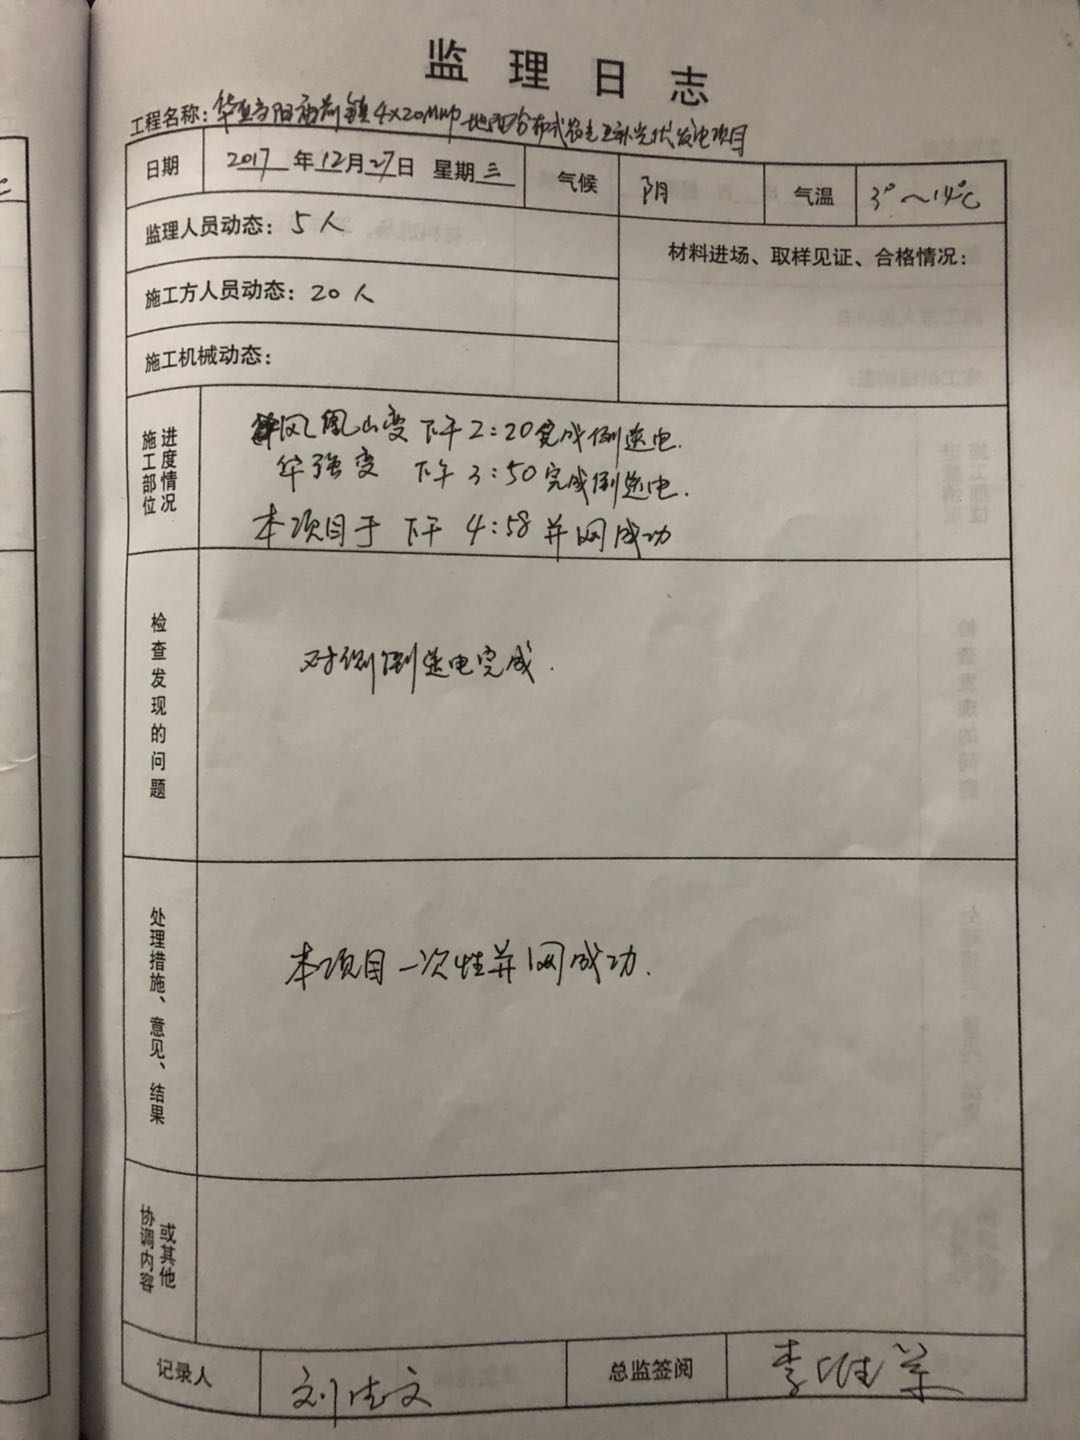 监理日志
工程名称：华 当阳 镇4×20MWp地面分布式农光互补光伏发电项目
日期 2017年12月27日 星期三 气候 阴 气温 3°～14℃
监理人员动态：5人
材料进场、取样见证、合格情况：
施工方人员动态：20人
施工机械动态：
施工部位
进度情况
凤凰山变 下午2:20完成倒送电.
华强变 下午3:50完成倒送电.
本项目于 下午 4:58 并网成功
检查发现的问题
对侧倒送电完成.
处理措施、意见、结果
本项目一次性并网成功.
协调内容
或其他
记录人 刘 文 总监签阅 李